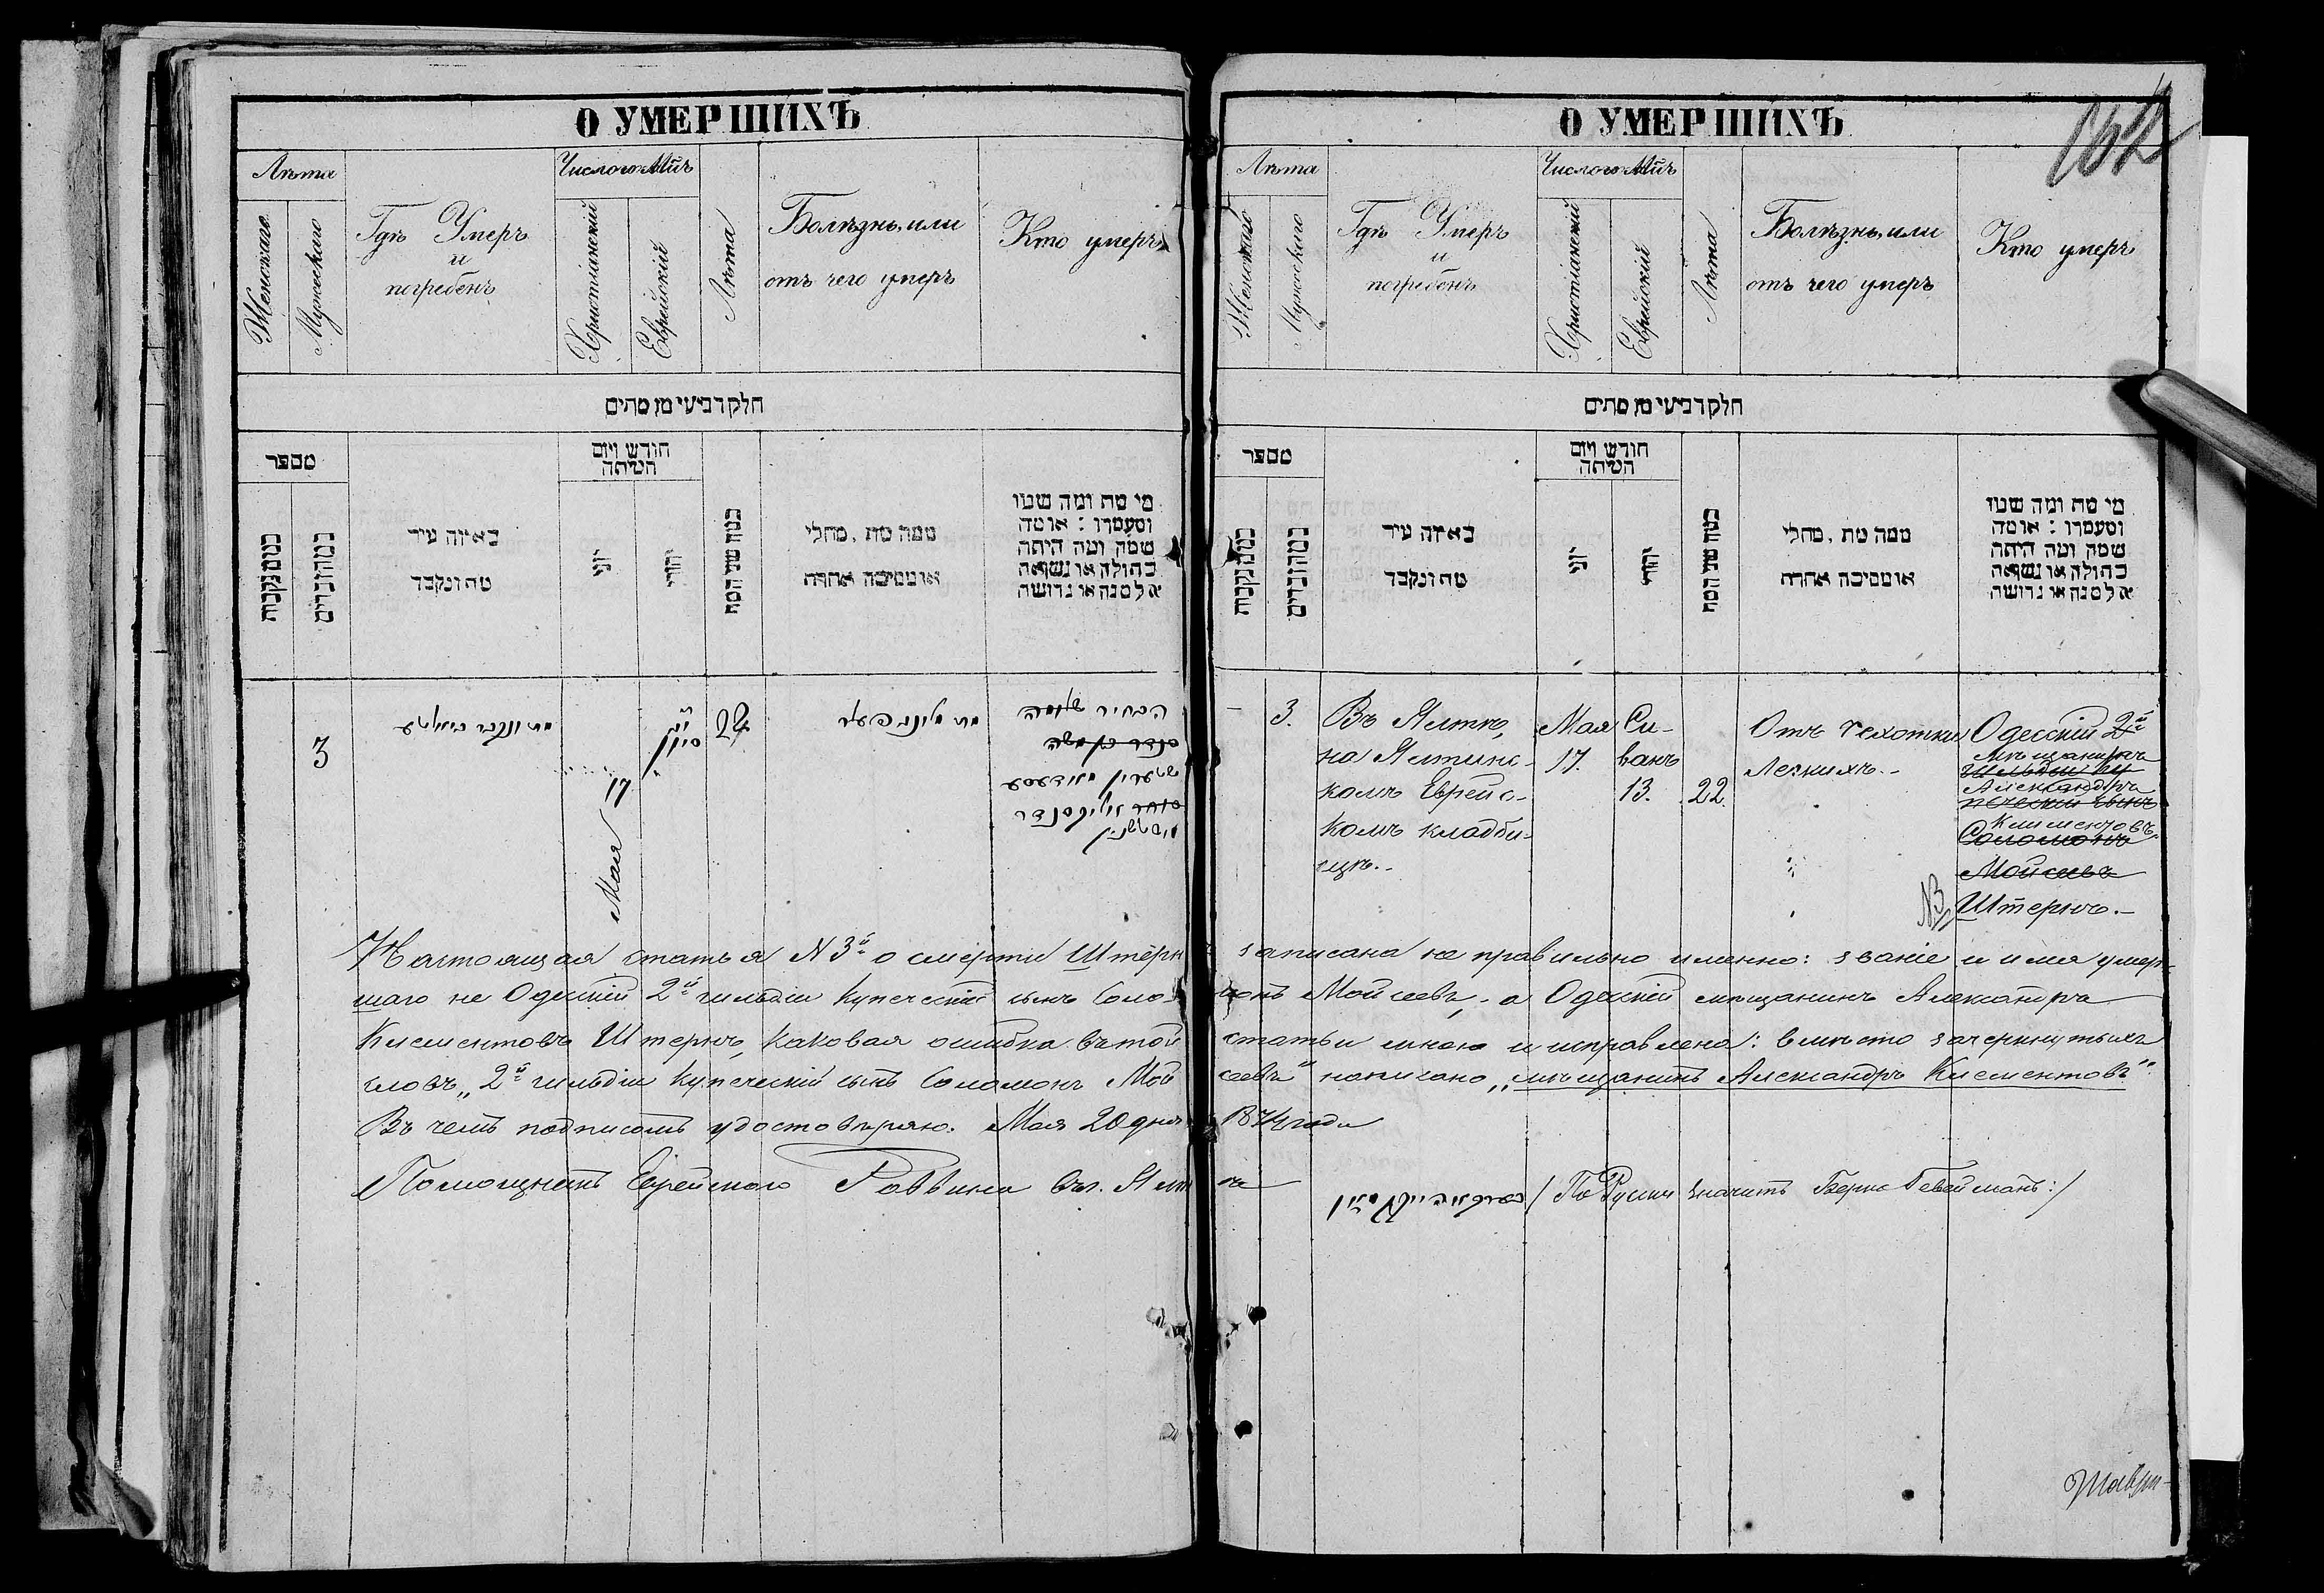 О УМЕРШИХЪ
Лѣта
Женскаго
Мужескаго
Гдѣ Умеръ
и
погребенъ
Число и Мѣсяцъ
Христіанскій
Еврейскій
Лѣта
Болѣзнь, или
отъ чего умеръ
Кто умеръ
חלק רביעי מן מתים
מספר
כמה נקבות
כמה זכרים
באיזה עיר
מת ונקבר
חודש ויום
המיתה
יוני
יהודי
כמה שני המת
ממה מת, מחלי
או מסיבה אחרת
מי מת ומה שמו
ומעמדו : או מה
שמה ומה היתה
בתולה או נשואה
אלמנה או גרושה
3
מת ונקבר
Мая 17
סיון
22
О УМЕРШИХЪ
162
Лѣта
Женскаго
Мужескаго
Гдѣ Умеръ
и
погребенъ
Число и Мѣсяцъ
Христіанскій
Еврейскій
Лѣта
Болѣзнь, или
отъ чего умеръ
Кто умеръ
חלק רביעי מן מתים
מספר
כמה נקבות
כמה זכרים
באיזה עיר
מת ונקבר
חודש ויום
המיתה
יוני
יהודי
כמה שני המת
ממה מת, מחלי
או מסיבה אחרת
מי מת ומה שמו
ומעמדו : או מה
שמה ומה היתה
בתולה או נשואה
אלמנה או גרושה
— 3.
Въ Ялтѣ,
на Ялтинс-
комъ Еврейс-
комъ кладби-
щѣ.-
Мая
17.
Си-
ванъ
13.
22.
Отъ чехотки
Легкихъ.-
Одесскій 2й
Мѣщанинъ
гильдіи ку
Александръ
печескій сынъ
Климентовъ
Соломонъ
Мойсеевъ
NB Штернъ.-
Настоящая статья N 3й о смерти Штерн записана не правильно именно: званіе и имя умер-
шаго не Одесскій 2й гильдіи купеческій сынъ Соломонъ Мойсеевъ, а Одесскій мѣщанинъ Александръ
Климентовъ Штернъ, каковая ошибка въ той статьи мною и исправлена: вмѣсто зачеркнутыхъ
словъ „2й гильдіи купеческій сынъ Соломонъ Мойсеевъ" написано „мѣщанинъ Александръ Климентовъ".
Въ чемъ подписомъ удостовѣряю. Мая 20 дня 1874 года
Помощникъ Еврейского Раввина въ г. Ялтѣ
/ По Русски значитъ Берко Гевейманъ :/
Таври-